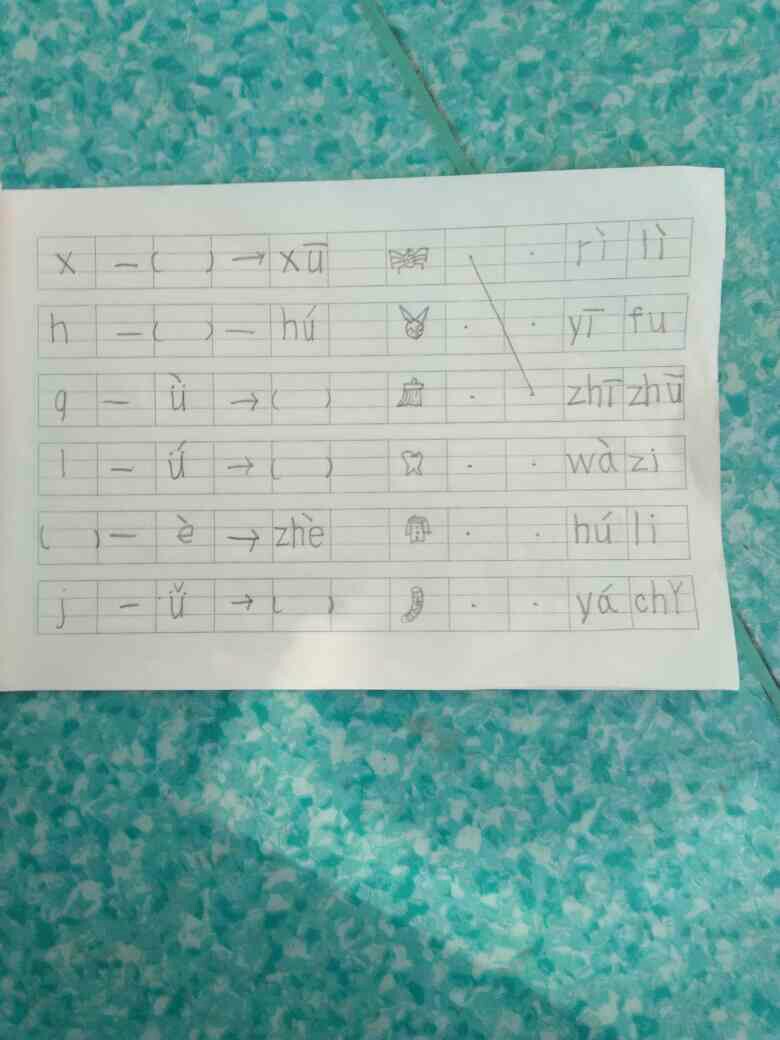 x — ( ) → xū rì lì
h — ( ) — hú yī fu
q — ǜ → ( ) zhī zhū
l — ǘ → ( ) wà zi
( ) — è → zhè hú li
j — ǚ → ( ) yá chǐ